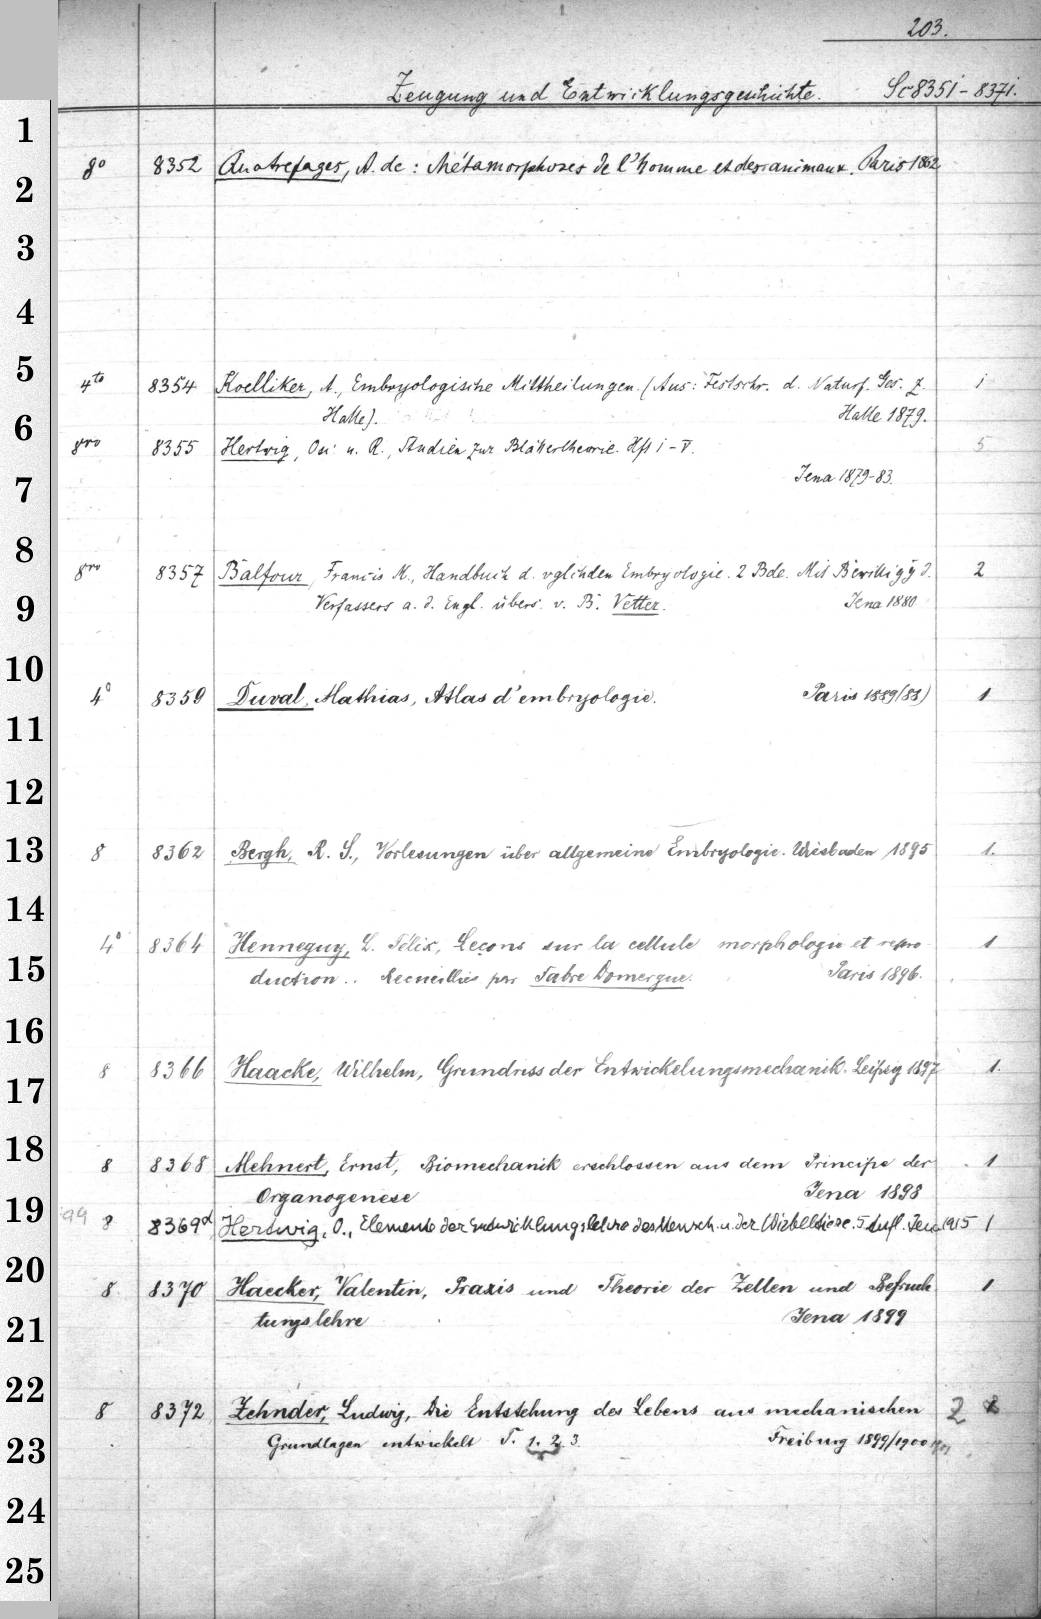 203.
Zeugung und Entwicklungsgeschichte. Sc 8351 - 8371.
1
8° 8352 Quatrefages, A. de : Métamorphoses de l'homme et des animaux. Paris 1862
2
3
4
5
4to 8354 Koelliker, A., Embryologische Mittheilungen. (Aus: Festschr. d. Naturf. Ges. z. 1
Halle). Halle 1879.
6
8vo 8355 Hertwig, Os. u. R., Studien zur Blättertheorie. Hft I - V. 5
Jena 1879-83.
7
8
8vo 8357 Balfour, Francis M., Handbuch d. vglchden Embryologie. 2 Bde. Mit Bewilligg d. 2
Verfassers a. d. Engl. übers. v. B. Vetter. Jena 1880
9
10
4° 8359 Duval, Mathias, Atlas d'embryologie. Paris 1889(88) 1
11
12
13
8 8362 Bergh, R. S., Vorlesungen über allgemeine Embryologie. Wiesbaden 1895 1.
14
4° 8364 Henneguy, L. Félix, Leçons sur la cellule morphologie et repro- 1
15
duction .. Recueillies par Fabre Domergue. Paris 1896.
16
8 8366 Haacke, Wilhelm, Grundriss der Entwickelungsmechanik. Leipzig 1897 1.
17
18
8 8368 Mehnert, Ernst, Biomechanik erschlossen aus dem Principe der 1
Organogenese Jena 1898
19
8 8369d Hertwig, O., Elemente der Entwicklungslehre des Mensch. u. der Wirbeltiere. 5. Aufl. Jena 1915 1
20
8 8370 Haecker, Valentin, Praxis und Theorie der Zellen und Befruch 1
21
tungslehre Jena 1899
22
8 8372 Zehnder, Ludwig, Die Entstehung des Lebens aus mechanischen 2
23
Grundlagen entwickelt T. 1. 2. 3. Freiburg 1899/1900
24
25